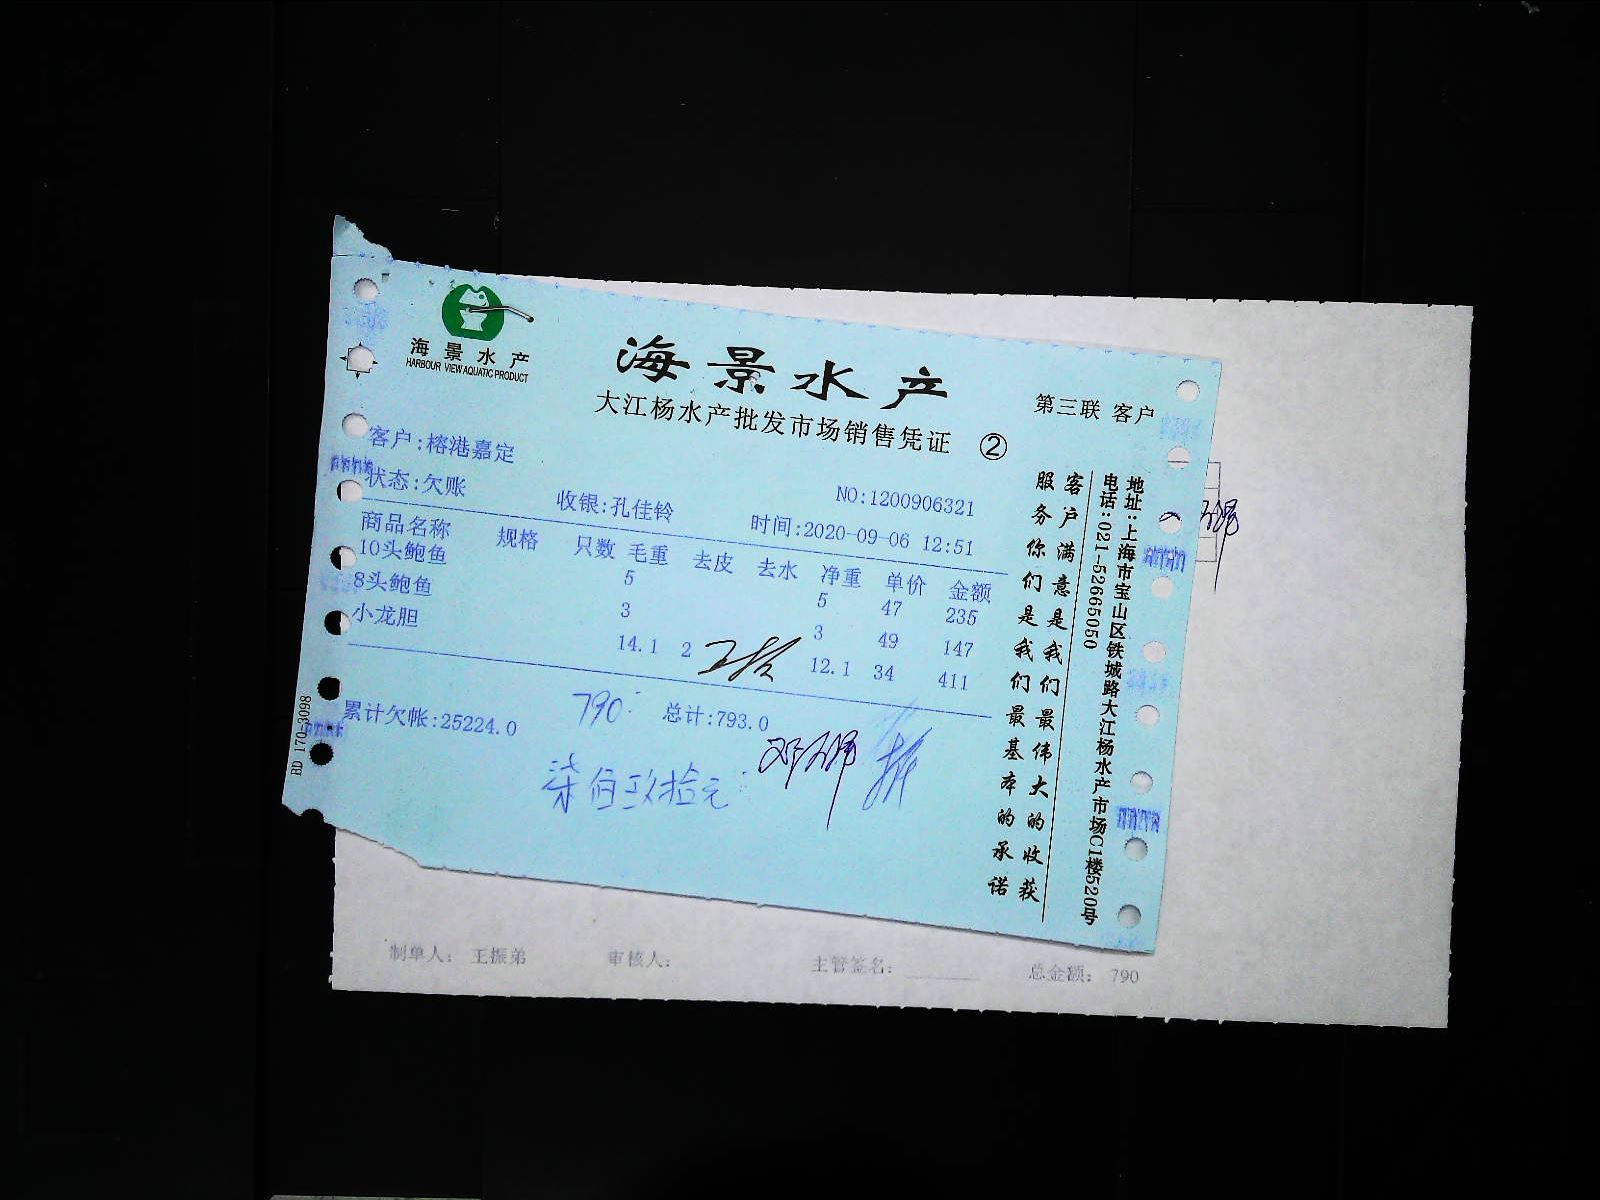 海景水产
HARBOUR VIEW AQUATIC PRODUCT
海景水产
大江杨水产批发市场销售凭证 ②
第三联 客户
客户:榕港嘉定
状态:欠账
收银:孔佳铃
NO:1200906321
时间:2020-09-06 12:51
商品名称 规格 只数 毛重 去皮 去水 净重 单价 金额
10头鲍鱼 5 5 47 235
8头鲍鱼 3 3 49 147
小龙胆 14.1 2 12.1 34 411
累计欠帐:25224.0
790
总计:793.0
柒佰玖拾元
客户满意是我们最伟大的收获
服务你们是我们最基本的承诺
地址:上海市宝山区铁城路大江杨水产市场C1楼520号
电话:021-52665050
HD 170-3098
制单人: 王振弟 审核人: 主管签名: 总金额: 790